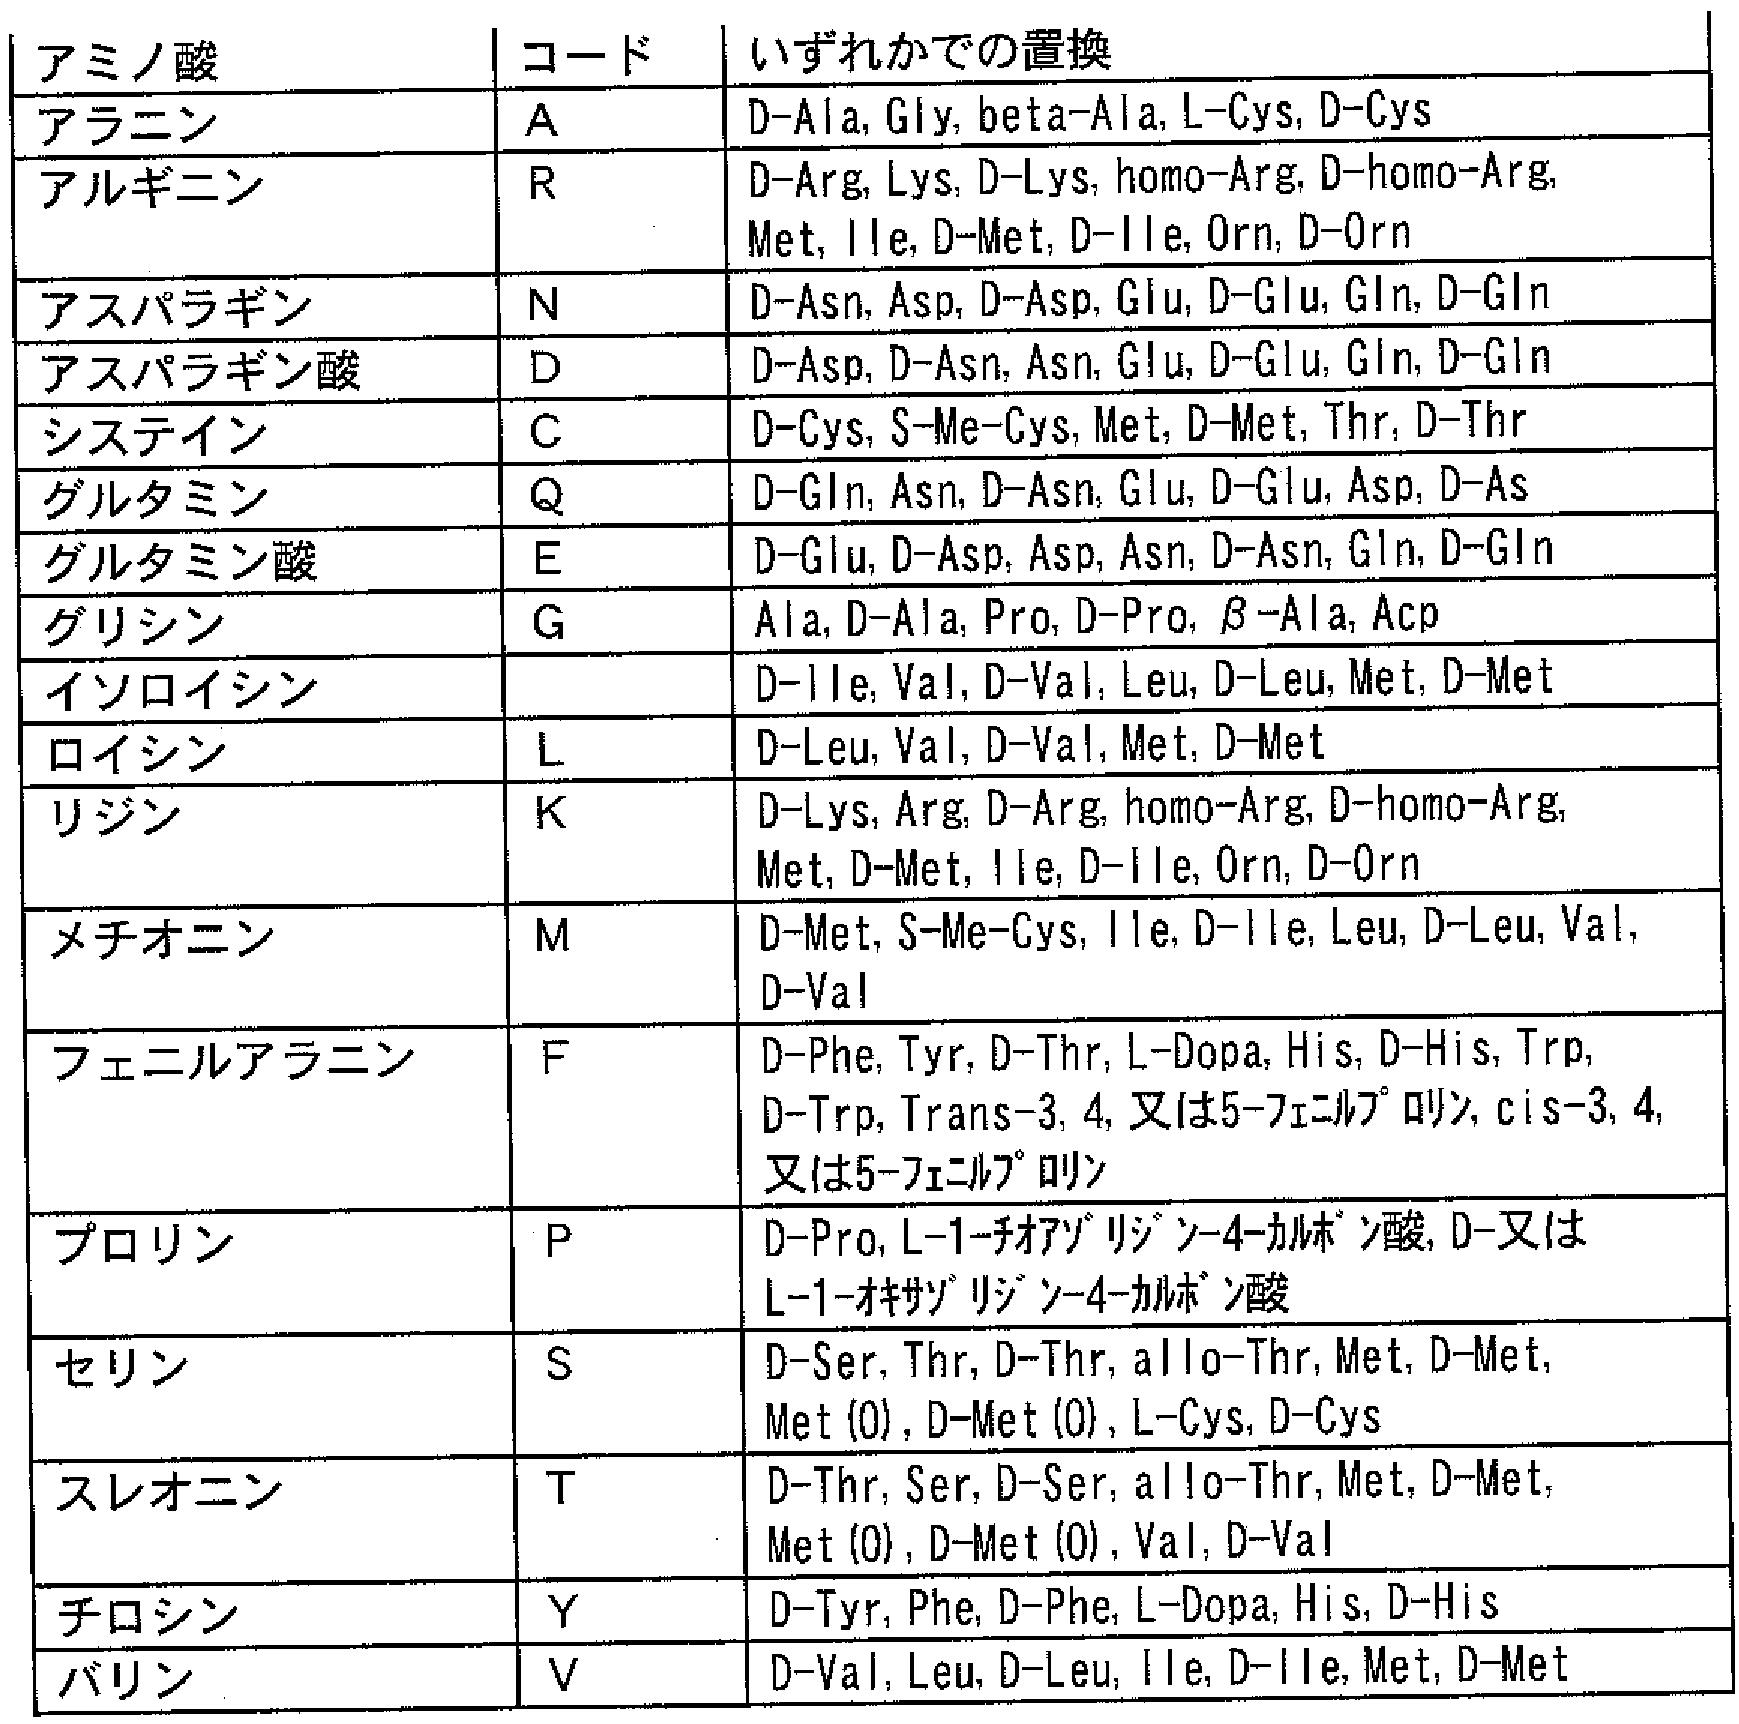 アミノ酸 コード いずれかでの置換
アラニン A D-Ala, Gly, beta-Ala, L-Cys, D-Cys
アルギニン R D-Arg, Lys, D-Lys, homo-Arg, D-homo-Arg,
Met, Ile, D-Met, D-Ile, Orn, D-Orn
アスパラギン N D-Asn, Asp, D-Asp, Glu, D-Glu, Gln, D-Gln
アスパラギン酸 D D-Asp, D-Asn, Asn, Glu, D-Glu, Gln, D-Gln
システイン C D-Cys, S-Me-Cys, Met, D-Met, Thr, D-Thr
グルタミン Q D-Gln, Asn, D-Asn, Glu, D-Glu, Asp, D-As
グルタミン酸 E D-Glu, D-Asp, Asp, Asn, D-Asn, Gln, D-Gln
グリシン G Ala, D-Ala, Pro, D-Pro, β-Ala, Acp
イソロイシン D-Ile, Val, D-Val, Leu, D-Leu, Met, D-Met
ロイシン L D-Leu, Val, D-Val, Met, D-Met
リジン K D-Lys, Arg, D-Arg, homo-Arg, D-homo-Arg,
Met, D-Met, Ile, D-Ile, Orn, D-Orn
メチオニン M D-Met, S-Me-Cys, Ile, D-Ile, Leu, D-Leu, Val,
D-Val
フェニルアラニン F D-Phe, Tyr, D-Thr, L-Dopa, His, D-His, Trp,
D-Trp, Trans-3, 4, 又は5-ﾌｪﾆﾙﾌﾟﾛﾘﾝ, cis-3, 4,
又は5-ﾌｪﾆﾙﾌﾟﾛﾘﾝ
プロリン P D-Pro, L-1-ﾁｵｱｿﾞﾘｼﾞﾝ-4-ｶﾙﾎﾞﾝ酸, D-又は
L-1-ｵｷｻｿﾞﾘｼﾞﾝ-4-ｶﾙﾎﾞﾝ酸
セリン S D-Ser, Thr, D-Thr, allo-Thr, Met, D-Met,
Met(O), D-Met(O), L-Cys, D-Cys
スレオニン T D-Thr, Ser, D-Ser, allo-Thr, Met, D-Met,
Met(O), D-Met(O), Val, D-Val
チロシン Y D-Tyr, Phe, D-Phe, L-Dopa, His, D-His
バリン V D-Val, Leu, D-Leu, Ile, D-Ile, Met, D-Met